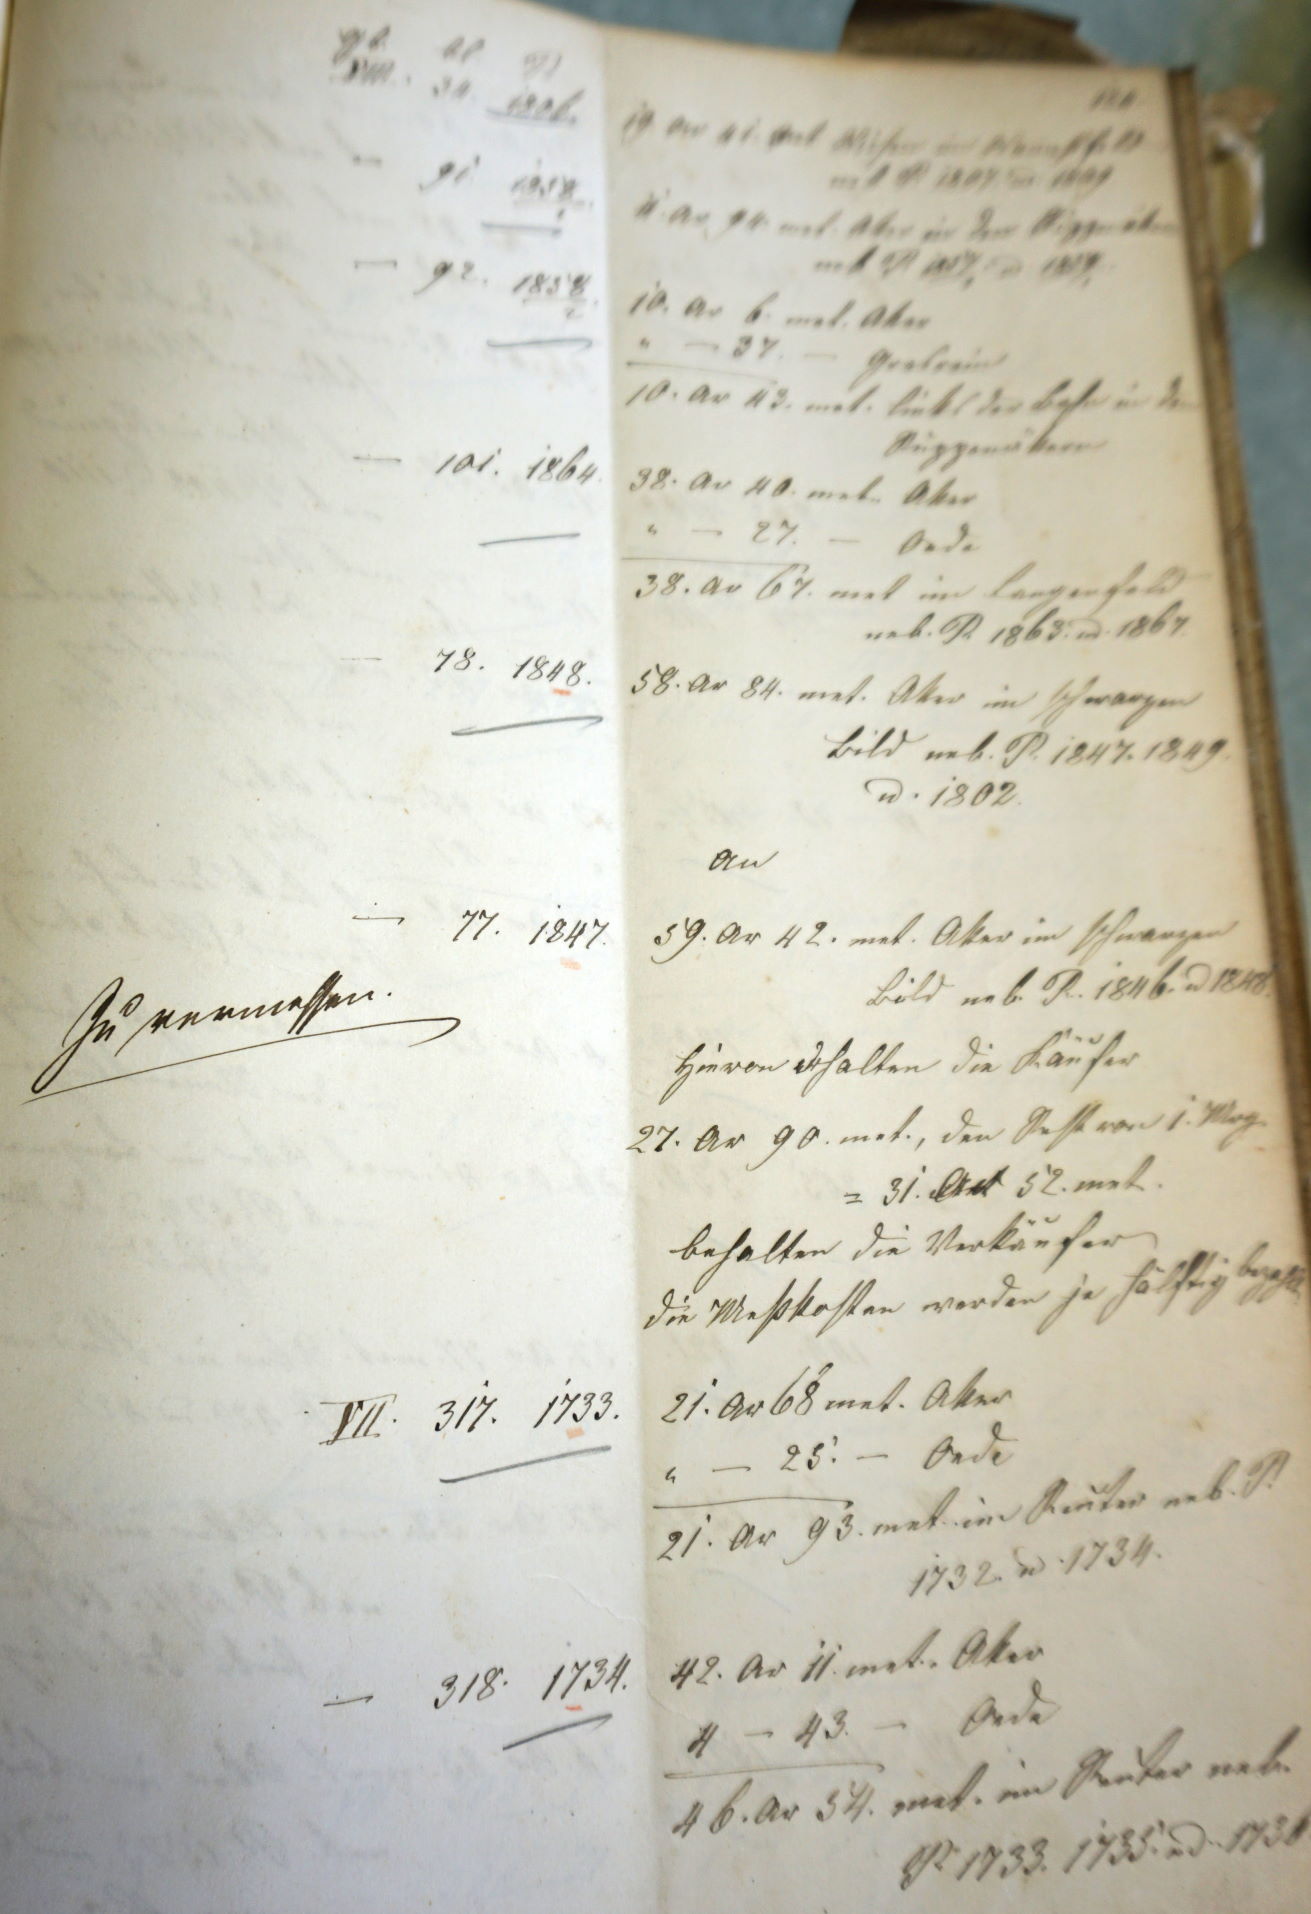 gb. bl.
VIII. 34. 1806.
19 Ar 41. met Wiesen im
neb P. 1807. u. 1809
— 91. 1858/1.
11. Ar 94. met. Aker in den
neb P. 1857. u. 1859.
— 92. 1858/2.
10. Ar 6. met. Aker
" — 37. — Grasrain
10. Ar 43. met. links der Bahn in den
— 101. 1864.
38. Ar 40. met. Aker
" — 27. — Oede
38. Ar 67. met im Langenfeld
neb. P. 1863. u. 1867.
— 78. 1848.
58. Ar 84. met. Aker im schwarzen
Bild neb. P. 1847. 1849.
u. 1802.
An
— 77. 1847.
59. Ar 42. met. Aker im schwarzen
Bild neb. P. 1846. u 1848.
Zu vermessen.
Hievon erhalten die Käufer
27. Ar 90. met., den Rest von 1. Mrg
= 31. Ar 52. met.
behalten die Verkäufer
die Meßkosten werden je hälftig bezahlt.
VII. 317. 1733.
21. Ar 68 met. Aker
" — 25. — Oede
21. Ar 93. met. im Reuter neb. P.
1732. u. 1734.
— 318. 1734.
42. Ar 11. met. Aker
4 — 43. — Oede
46. Ar 54. met. im Reuter neb.
P. 1733. 1735. u.